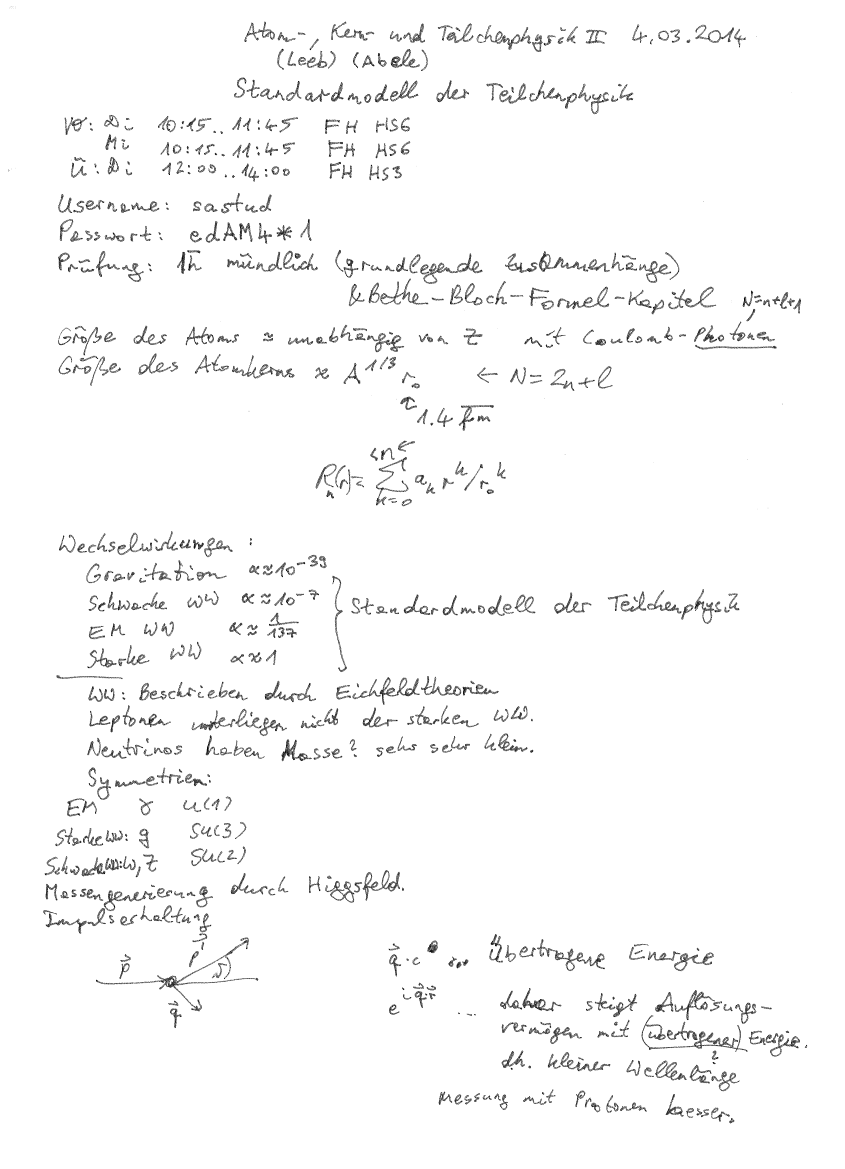 Atom-, Kern- und Teilchenphysik II 4.03.2014
(Leeb) (Abele)
Standardmodell der Teilchenphysik
VO: Di 10:15..11:45 FH HS6
Mi 10:15..11:45 FH HS6
Ü: Di 12:00..14:00 FH HS3
Username: sastud
Passwort: edAM4*1
Prüfung: 1h mündlich (grundlegende Zusammenhänge)
& Bethe-Bloch-Formel-Kapitel N=n+l+1
Größe des Atoms ≈ unabhängig von Z mit Coulomb-Photonen
Größe des Atomkerns ≈ A^1/3 r₀ ← N=2n+l
1.4 fm
R_n(r)= Σ_{k=0}^{≤n} a_k r^k/r₀^k
Wechselwirkungen:
Gravitation α≈10^-39
Schwache WW α≈10^-7
EM WW α≈1/137
Starke WW α≈1
} Standardmodell der Teilchenphysik
WW: Beschrieben durch Eichfeldtheorien
Leptonen unterliegen nicht der starken WW.
Neutrinos haben Masse? sehr sehr klein.
Symmetrien:
EM γ U(1)
Starke WW: g SU(3)
Schwache WW: W, Z SU(2)
Massengenerierung durch Higgsfeld.
Impulserhaltung
p⃗ p⃗' ϑ q⃗
q⃗·c ... Übertragene Energie
e^{iq⃗r⃗} ... daher steigt Auflösungs-
vermögen mit (übertragener) Energie.
?
d.h. kleiner Wellenlänge
Messung mit Protonen besser.